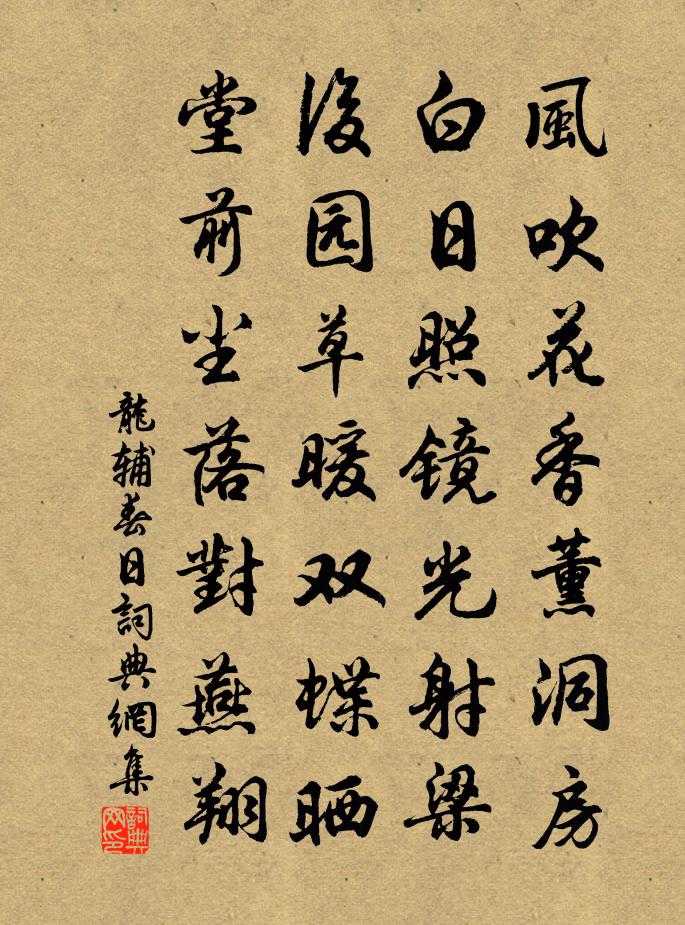 風吹花香薰洞房
白日照镜光射梁
後园草暖双蝶晒
堂前尘落對燕翔
龍辅春日詞典網集
詞典網印